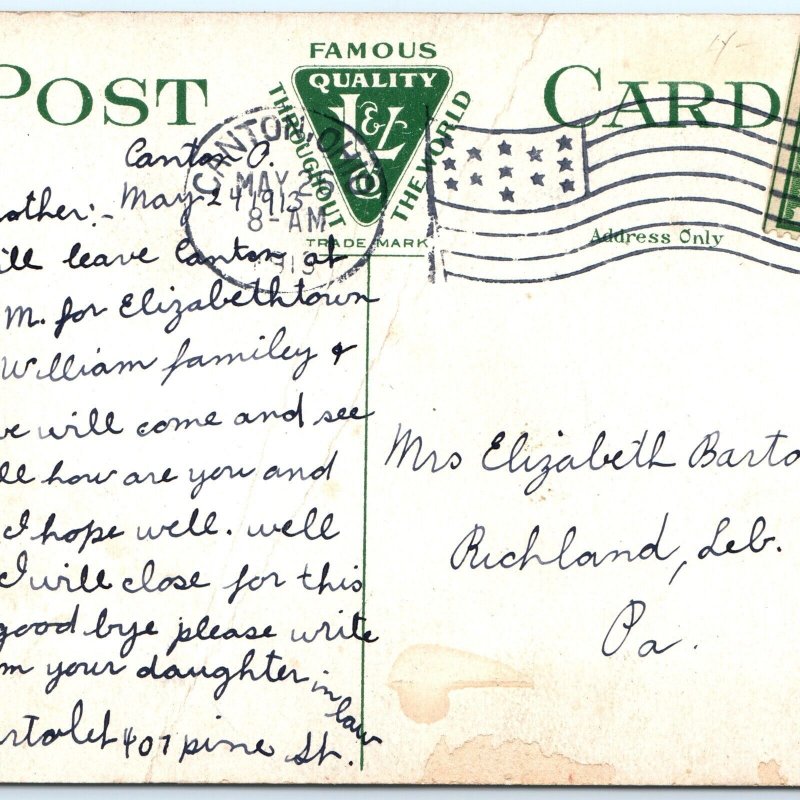 FAMOUS
POST CARD
QUALITY
L&L
THROUGHOUT
THE WORLD
TRADE MARK
CANTON, OHIO
MAY 26
8-AM
191
Address Only
Canton O.
May 24 1913
other:-
ill leave Canton at
M. for Elizabethtown
William familey &
we will come and see
ll how are you and
I hope well. well
I will close for this
good bye please write
m your daughter in law
rtolet 407 pine St.
Mrs Elizabeth Barto
Richland, Leb.
Pa.